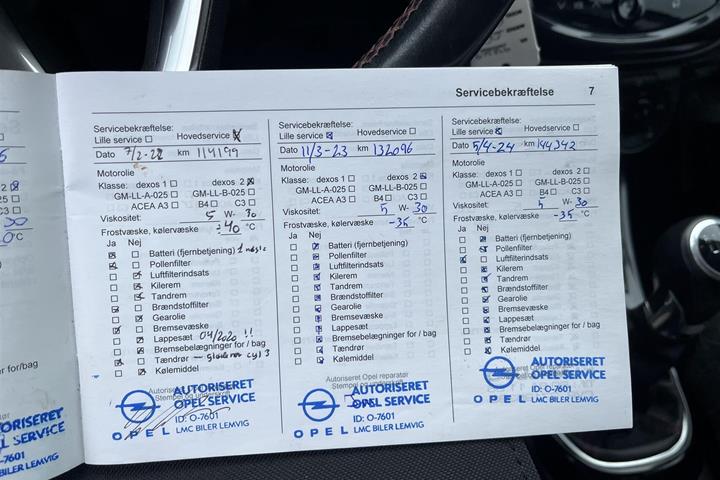 Servicebekræftelse 7
Servicebekræftelse:
Lille service ☐ Hovedservice ☒
Dato 7/2-22 km 114199
Motorolie
Klasse: dexos 1 ☐ dexos 2 ☒
GM-LL-A-025 ☐ GM-LL-B-025 ☐
ACEA A3 ☐ B4 ☐ C3 ☐
Viskositet: 5 W- 30
Frostvæske, kølervæske ÷40 °C
Ja Nej
☒ ☐ Batteri (fjernbetjening)
☒ ☐ Pollenfilter
☐ ☒ Luftfilterindsats
☐ ☒ Kilerem
☐ ☒ Tandrem
☒ ☐ Brændstoffilter
☐ ☒ Gearolie
☒ ☐ Bremsevæske
☐ ☒ Lappesæt 04/2020 !!
☐ ☒ Bremsebelægninger for / bag
☒ ☐ Tændrør — cyl 3
☐ ☒ Kølemiddel
Autoriseret Opel
Stempel og
AUTORISERET
OPEL SERVICE
ID: O-7601
OPEL LMC BILER LEMVIG
Servicebekræftelse:
Lille service ☒ Hovedservice ☐
Dato 11/3-23 km 132096
Motorolie
Klasse: dexos 1 ☐ dexos 2 ☒
GM-LL-A-025 ☐ GM-LL-B-025 ☐
ACEA A3 ☐ B4 ☐ C3 ☐
Viskositet: 5 W- 30
Frostvæske, kølervæske -35 °C
Ja Nej
☐ ☒ Batteri (fjernbetjening)
☐ ☒ Pollenfilter
☐ ☒ Luftfilterindsats
☐ ☒ Kilerem
☐ ☒ Tandrem
☐ ☒ Brændstoffilter
☐ ☒ Gearolie
☐ ☒ Bremsevæske
☐ ☒ Lappesæt
☐ ☒ Bremsebelægninger for / bag
☐ ☒ Tændrør
☐ ☒ Kølemiddel
Autoriseret Opel reparatør
Stempel og
AUTORISERET
OPEL SERVICE
ID: O-7601
OPEL LMC BILER LEMVIG
Servicebekræftelse:
Lille service ☒ Hovedservice ☐
Dato 5/4-24 km 144342
Motorolie
Klasse: dexos 1 ☐ dexos 2 ☐
GM-LL-A-025 ☐ GM-LL-B-025 ☐
ACEA A3 ☐ B4 ☐ C3 ☐
Viskositet: 5 W- 30
Frostvæske, kølervæske -35 °C
Ja Nej
☐ ☒ Batteri (fjernbetjening)
☐ ☒ Pollenfilter
☒ ☐ Luftfilterindsats
☐ ☒ Kilerem
☐ ☒ Tandrem
☐ ☒ Brændstoffilter
☐ ☒ Gearolie
☐ ☒ Bremsevæske
☐ ☒ Lappesæt
☐ ☒ Bremsebelægninger for / bag
☐ ☒ Tændrør
☐ ☒ Kølemiddel
Autoriseret Opel reparatør
AUTORISERET
OPEL SERVICE
ID: O-7601
OPEL LMC BILER LEMVIG